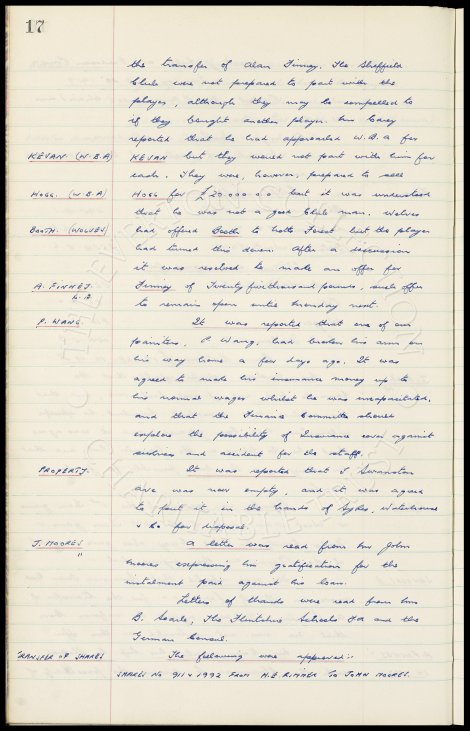 17
the transfer of Alan Finney. The Sheffield
Club were not prepared to part with the
player, although they may be compelled to
if they bought another player. Mr Carey
reported that he had approached W.B.A for
KEVAN (W.B.A) KEVAN but they would not part with him for
cash. They were, however, prepared to sell
HOGG. (W.B.A) HOGG for £20.000 0 0 but it was understood
that he was not a good Club man. Wolves
BOOTH. (WOLVES) had offered Booth to Notts Forest but the player
had turned this down. After a discussion
it was resolved to make an offer for
A. FINNEY Finney of Twenty five thousand pounds, such offer
to remain open until Monday next
P. WANG. It was reported that one of our
painters, P Wang, had broken his arm on
his way home a few days ago. It was
agreed to make his insurance money up to
his normal wages whilst he was incapacitated,
and that the Finance Committee should
explore the possibility of Insurance cover against
sickness and accident for the staff.
PROPERTY. It was reported that 5 Swanston
Ave was now empty, and it was agreed
to put it in the hands of Sykes, Waterhouse
& Co for disposal.
J. MOORES A letter was read from Mr John
" Moores expressing his gratification for the
instalment paid against his loan.
Letters of thanks were read from Mr
B. Searle, The Flintshire Schools FA and the
German Consul.
TRANSFER OF SHARES The following were approved:-
SHARES No 911 & 1992 FROM H.E RIMMER TO JOHN MOORES.